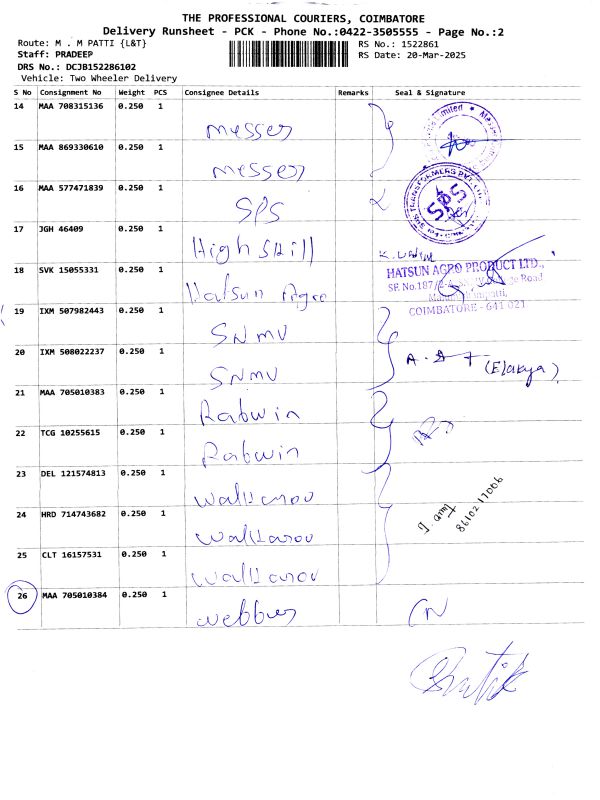 THE PROFESSIONAL COURIERS, COIMBATORE
Delivery Runsheet - PCK - Phone No.:0422-3505555 - Page No.:2
Route: M . M PATTI {L&T}
RS No.: 1522861
Staff: PRADEEP
RS Date: 20-Mar-2025
DRS No.: DCJB152286102
Vehicle: Two Wheeler Delivery
S No Consignment No Weight PCS Consignee Details Remarks Seal & Signature
14 MAA 708315136 0.250 1
Messer
15 MAA 869330610 0.250 1
Messer
16 MAA 577471839 0.250 1
SPS
SPS
17 JGH 46409 0.250 1
High Skill
18 SVK 15055331 0.250 1
Hatsun Agro
HATSUN AGRO PRODUCT LTD.,
SF. No.187/
COIMBATORE - 641 021
19 IXM 507982443 0.250 1
SNMV
20 IXM 508022237 0.250 1
SNMV
(Elakya)
21 MAA 705010383 0.250 1
Rabwin
22 TCG 10255615 0.250 1
Rabwin
23 DEL 121574813 0.250 1
24 HRD 714743682 0.250 1
8610217006
25 CLT 16157531 0.250 1
26 MAA 705010384 0.250 1